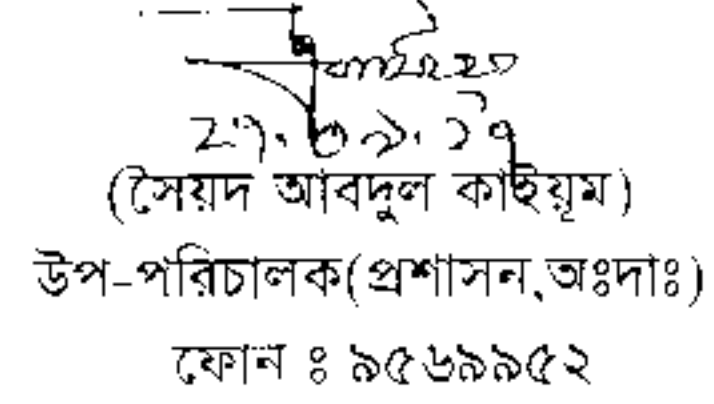 (সৈয়দ আবদুল কাইয়ূম)
উপ-পরিচালক(প্রশাসন,অঃদাঃ)
ফোন ঃ ৯৫৬৯৯৫২